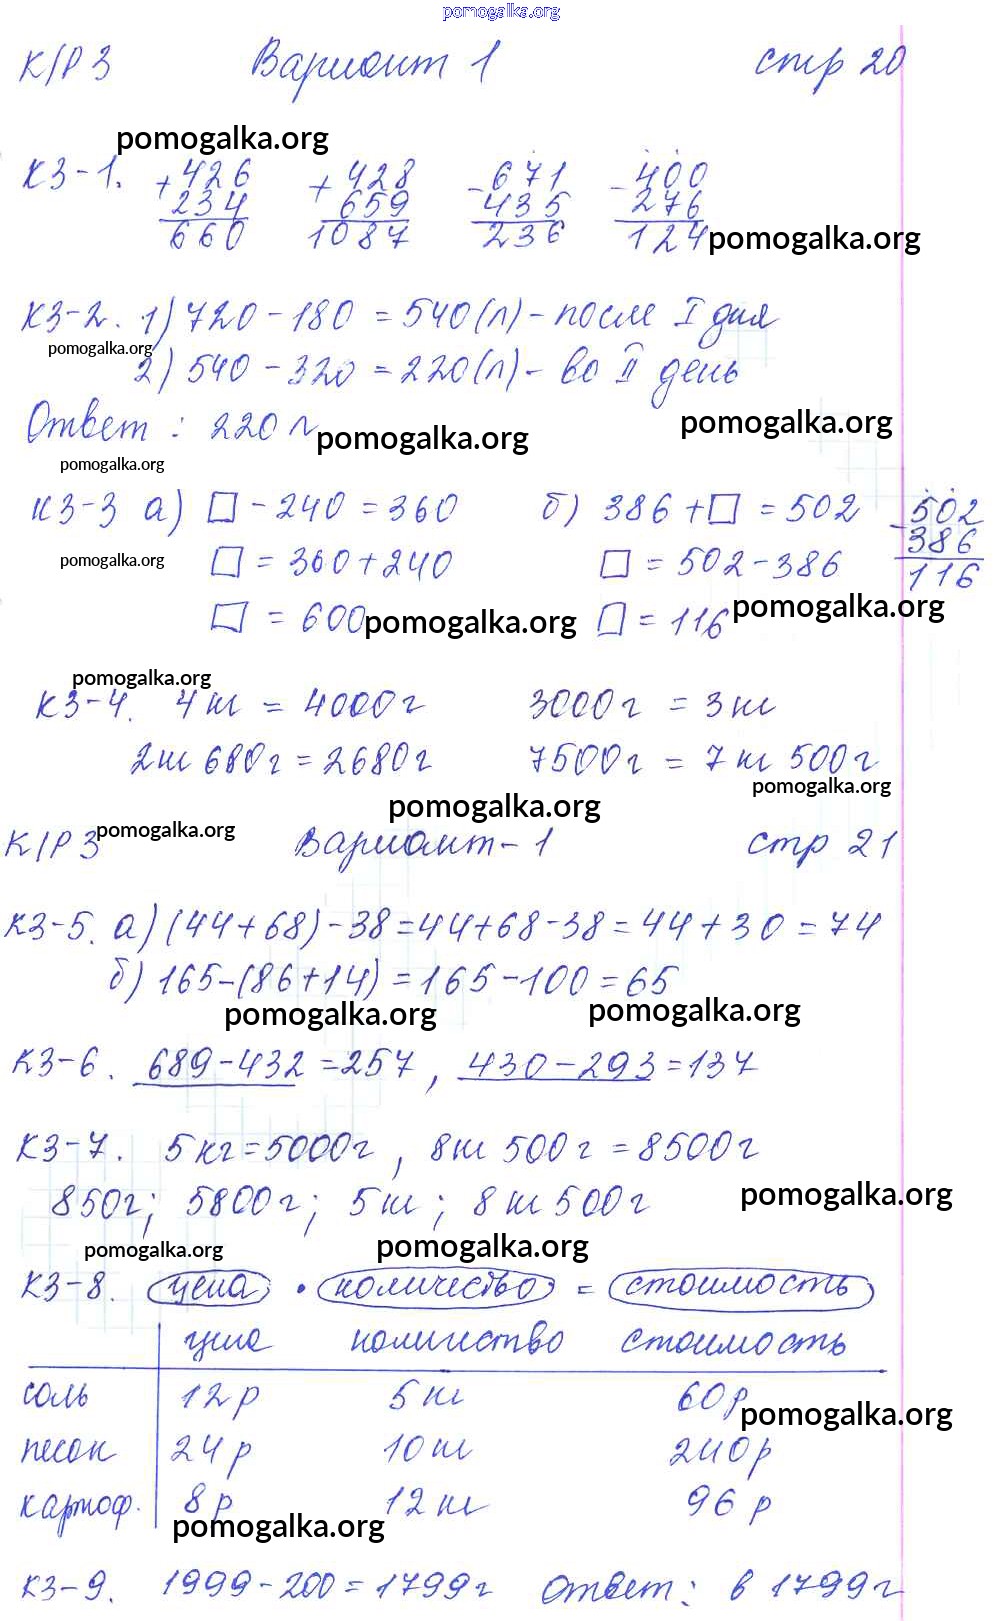 pomogalka.org
К/Р 3 Вариант 1 стр 20
pomogalka.org
К3-1. +426 +428 -671 -400
234 659 435 276
660 1087 236 124 pomogalka.org
К3-2. 1) 720 - 180 = 540(л) - после I дня
pomogalka.org
2) 540 - 320 = 220(л) - во II день
Ответ: 220 л pomogalka.org pomogalka.org
pomogalka.org
К3-3 а) □ - 240 = 360 б) 386 + □ = 502 -502
386
pomogalka.org □ = 360 + 240 □ = 502 - 386 116
□ = 600 pomogalka.org □ = 116 pomogalka.org
pomogalka.org
К3-4. 4 кг = 4000 г 3000 г = 3 кг
2 кг 680 г = 2680 г 7500 г = 7 кг 500 г
pomogalka.org pomogalka.org
К/Р 3 pomogalka.org Вариант - 1 стр 21
К3-5. а) (44 + 68) - 38 = 44 + 68 - 38 = 44 + 30 = 74
б) 165 - (86 + 14) = 165 - 100 = 65
pomogalka.org pomogalka.org
К3-6. 689 - 432 = 257, 430 - 293 = 137
К3-7. 5 кг = 5000 г, 8 кг 500 г = 8500 г
850 г; 5800 г; 5 кг; 8 кг 500 г pomogalka.org
pomogalka.org pomogalka.org
К3-8. цена · количество = стоимость
цена количество стоимость
соль 12 р 5 кг 60 р pomogalka.org
песок 24 р 10 кг 240 р
картоф. 8 р 12 кг 96 р
pomogalka.org
К3-9. 1999 - 200 = 1799 г Ответ: в 1799 г